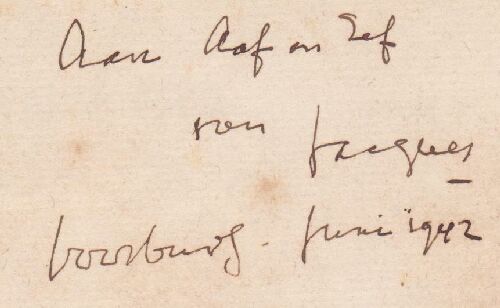 Aan Aaf en Eef
van Jacques
Voorburg. Juni '1942